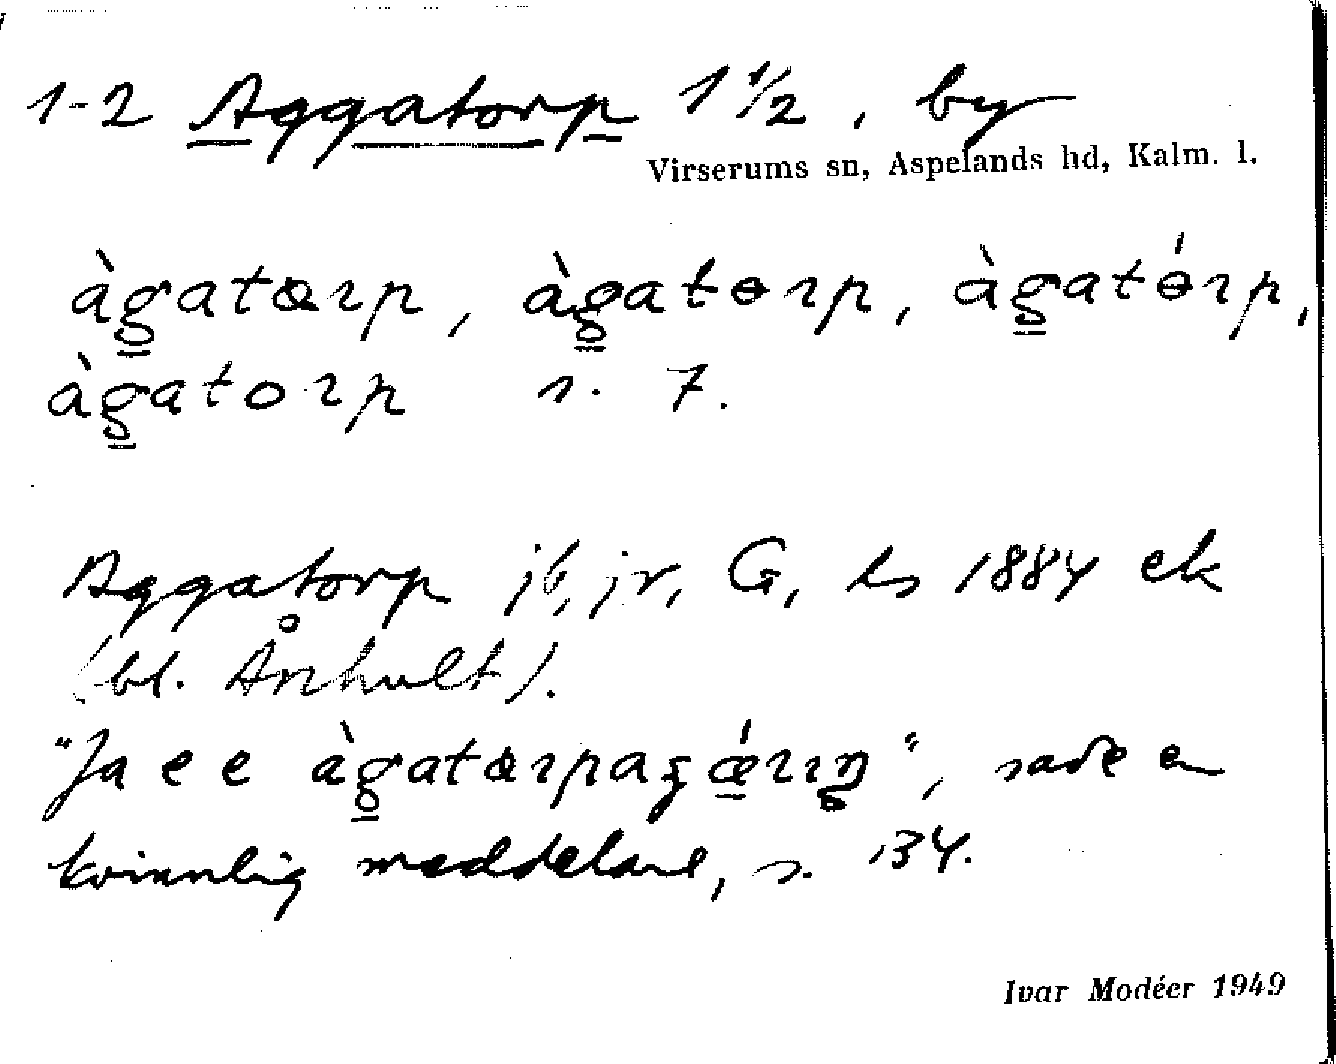 1-2 Aggatorp 1 1/2, by
Virserums sn, Aspelands hd, Kalm. l.
àgatɷrp, àgatɵrp, àgatɵ́rp,
àgatorp s. 7.
Aggatorp jb, jr, G, ks 1884 ek
(bl. Ånhult).
"Ja e e
sade en
kvinnlig meddelare, s. 134.
Ivar Modéer 1949